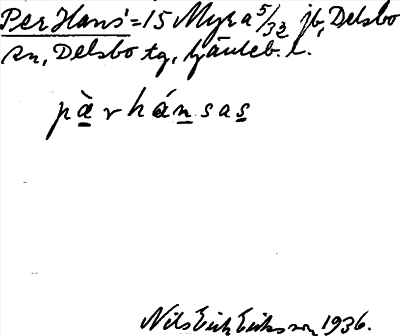 Per Hans' = 15 Myra 5/32 jb, Delsbo
sn, Delsbo tg, Gävleb. l.
pàrhánsas
Nils Erik Eriksson 1936.